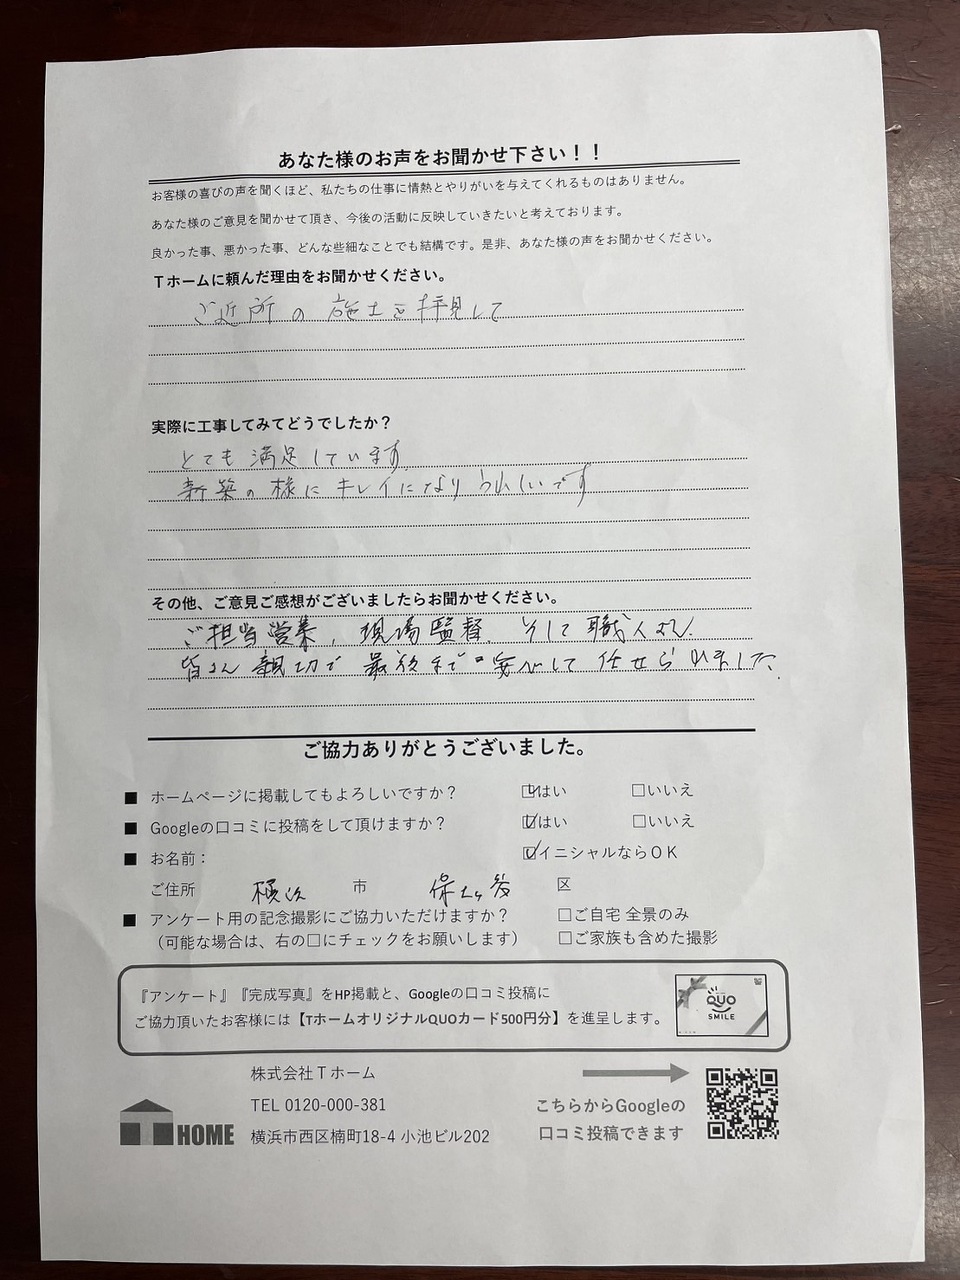 あなた様のお声をお聞かせ下さい！！
お客様の喜びの声を聞くほど、私たちの仕事に情熱とやりがいを与えてくれるものはありません。
あなた様のご意見を聞かせて頂き、今後の活動に反映していきたいと考えております。
良かった事、悪かった事、どんな些細なことでも結構です。是非、あなた様の声をお聞かせください。
Ｔホームに頼んだ理由をお聞かせください。
ご近所の施工を拝見して
実際に工事してみてどうでしたか？
とても満足しています
新築の様にキレイになりうれしいです
その他、ご意見ご感想がございましたらお聞かせください。
ご担当営業、現場監督そして職人さん
皆さん親切で最後まで安心して任せられました。
ご協力ありがとうございました。
■ ホームページに掲載してもよろしいですか？ ☑はい □いいえ
■ Googleの口コミに投稿をして頂けますか？ ☑はい □いいえ
■ お名前： ☑イニシャルならＯＫ
ご住所 横浜 市 保土ヶ谷 区
■ アンケート用の記念撮影にご協力いただけますか？ □ご自宅 全景のみ
（可能な場合は、右の□にチェックをお願いします） □ご家族も含めた撮影
『アンケート』『完成写真』をHP掲載と、Googleの口コミ投稿に
ご協力頂いたお客様には【TホームオリジナルQUOカード500円分】を進呈します。
QUO
SMILE
株式会社Ｔホーム
TEL 0120-000-381
横浜市西区楠町18-4 小池ビル202
HOME
こちらからGoogleの
口コミ投稿できます